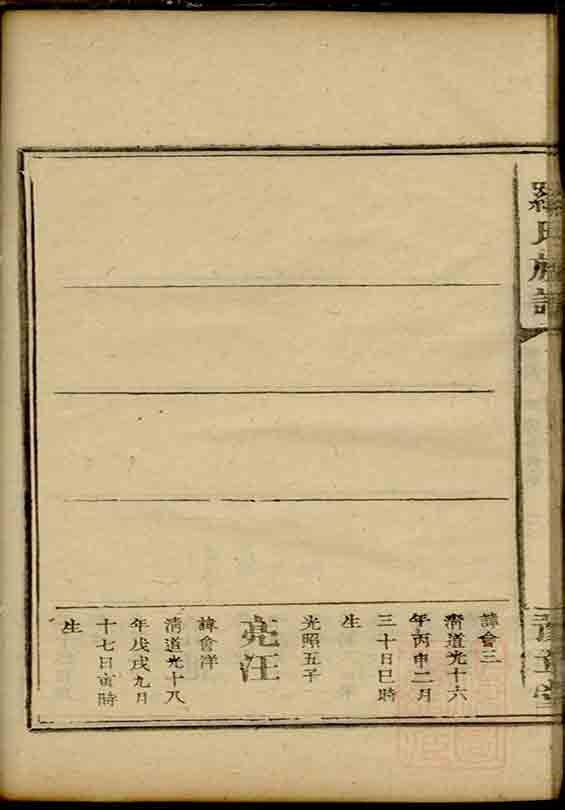 羅氏族譜
諱會三
清道光十六
年丙申二月
三十日巳時
生
光照五子
亮汪
諱會洋
清道光十八
年戊戌九月
十七日寅時
生